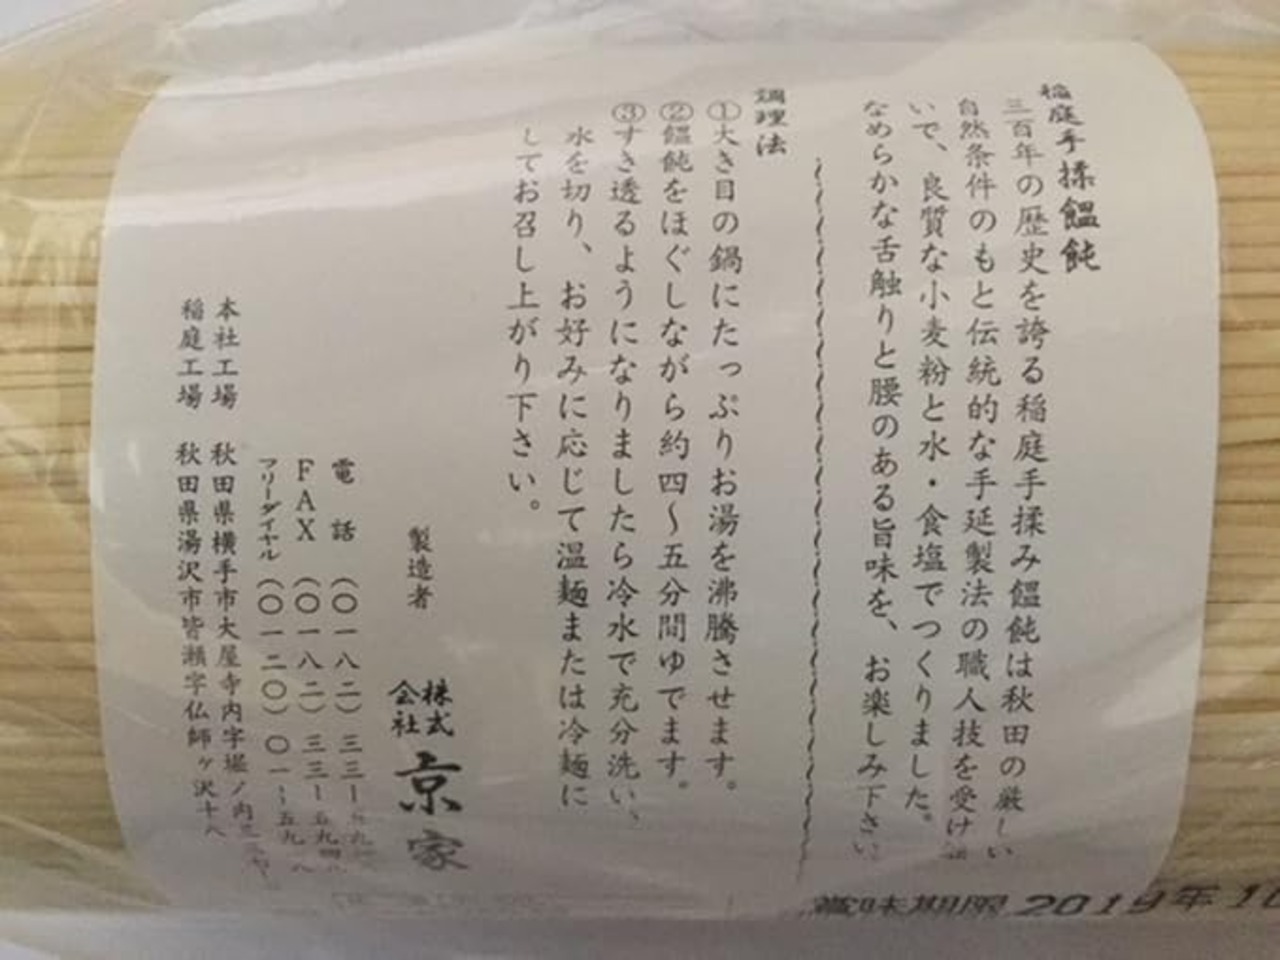 稲庭手揉饂飩
三百年の歴史を誇る稲庭手揉み饂飩は秋田の厳しい
自然条件のもと伝統的な手延製法の職人技を受け
いで、良質な小麦粉と水・食塩でつくりました。
なめらかな舌触りと腰のある旨味を、お楽しみ下さい
調理法
①大き目の鍋にたっぷりお湯を沸騰させます。
②饂飩をほぐしながら約四〜五分間ゆでます。
③すき透るようになりましたら冷水で充分洗い、
水を切り、お好みに応じて温麺または冷麺に
してお召し上がり下さい。
製造者 株式会社 京家
電話 (〇一八二)三三ー
FAX (〇一八二)三三ー五九四
フリーダイヤル (〇一二〇)〇一ー五九
本社工場 秋田県横手市大屋寺内字堀ノ内
稲庭工場 秋田県湯沢市皆瀬字仏師ヶ沢十八
賞味期限 2019年10